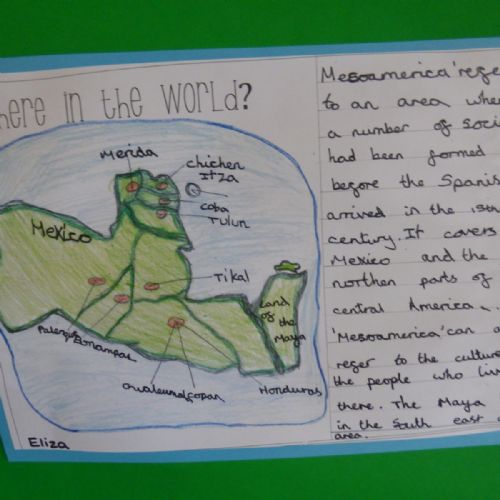 here in the world?
Merida
Chichen
Itza
Coba
Tulun
Mexico
Tikal
Land
of the
Maya
Bonampas
copan
Honduras
Eliza
Mesoamerica' rege
to an area whe
a number of soci
had been formed
before the Spanis
arrived in the 15th
century. It covers
Mexico and the
northen parts of
central America.
'Mesoamerica' can a
reger to the cultur
the people who liv
there. The Maya
in the south east
area.